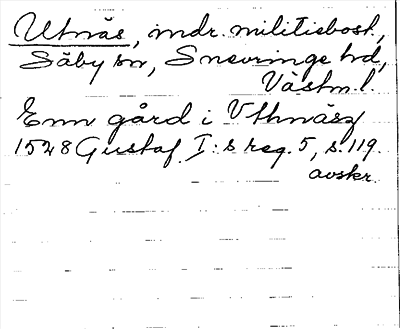 Utnäs, mdr. militiebost.,
Säby sn, Snevringe hd,
Västm. l.
Enn gård i Vthnäsz
1528 Gustaf I:s reg. 5, s. 119.
avskr.